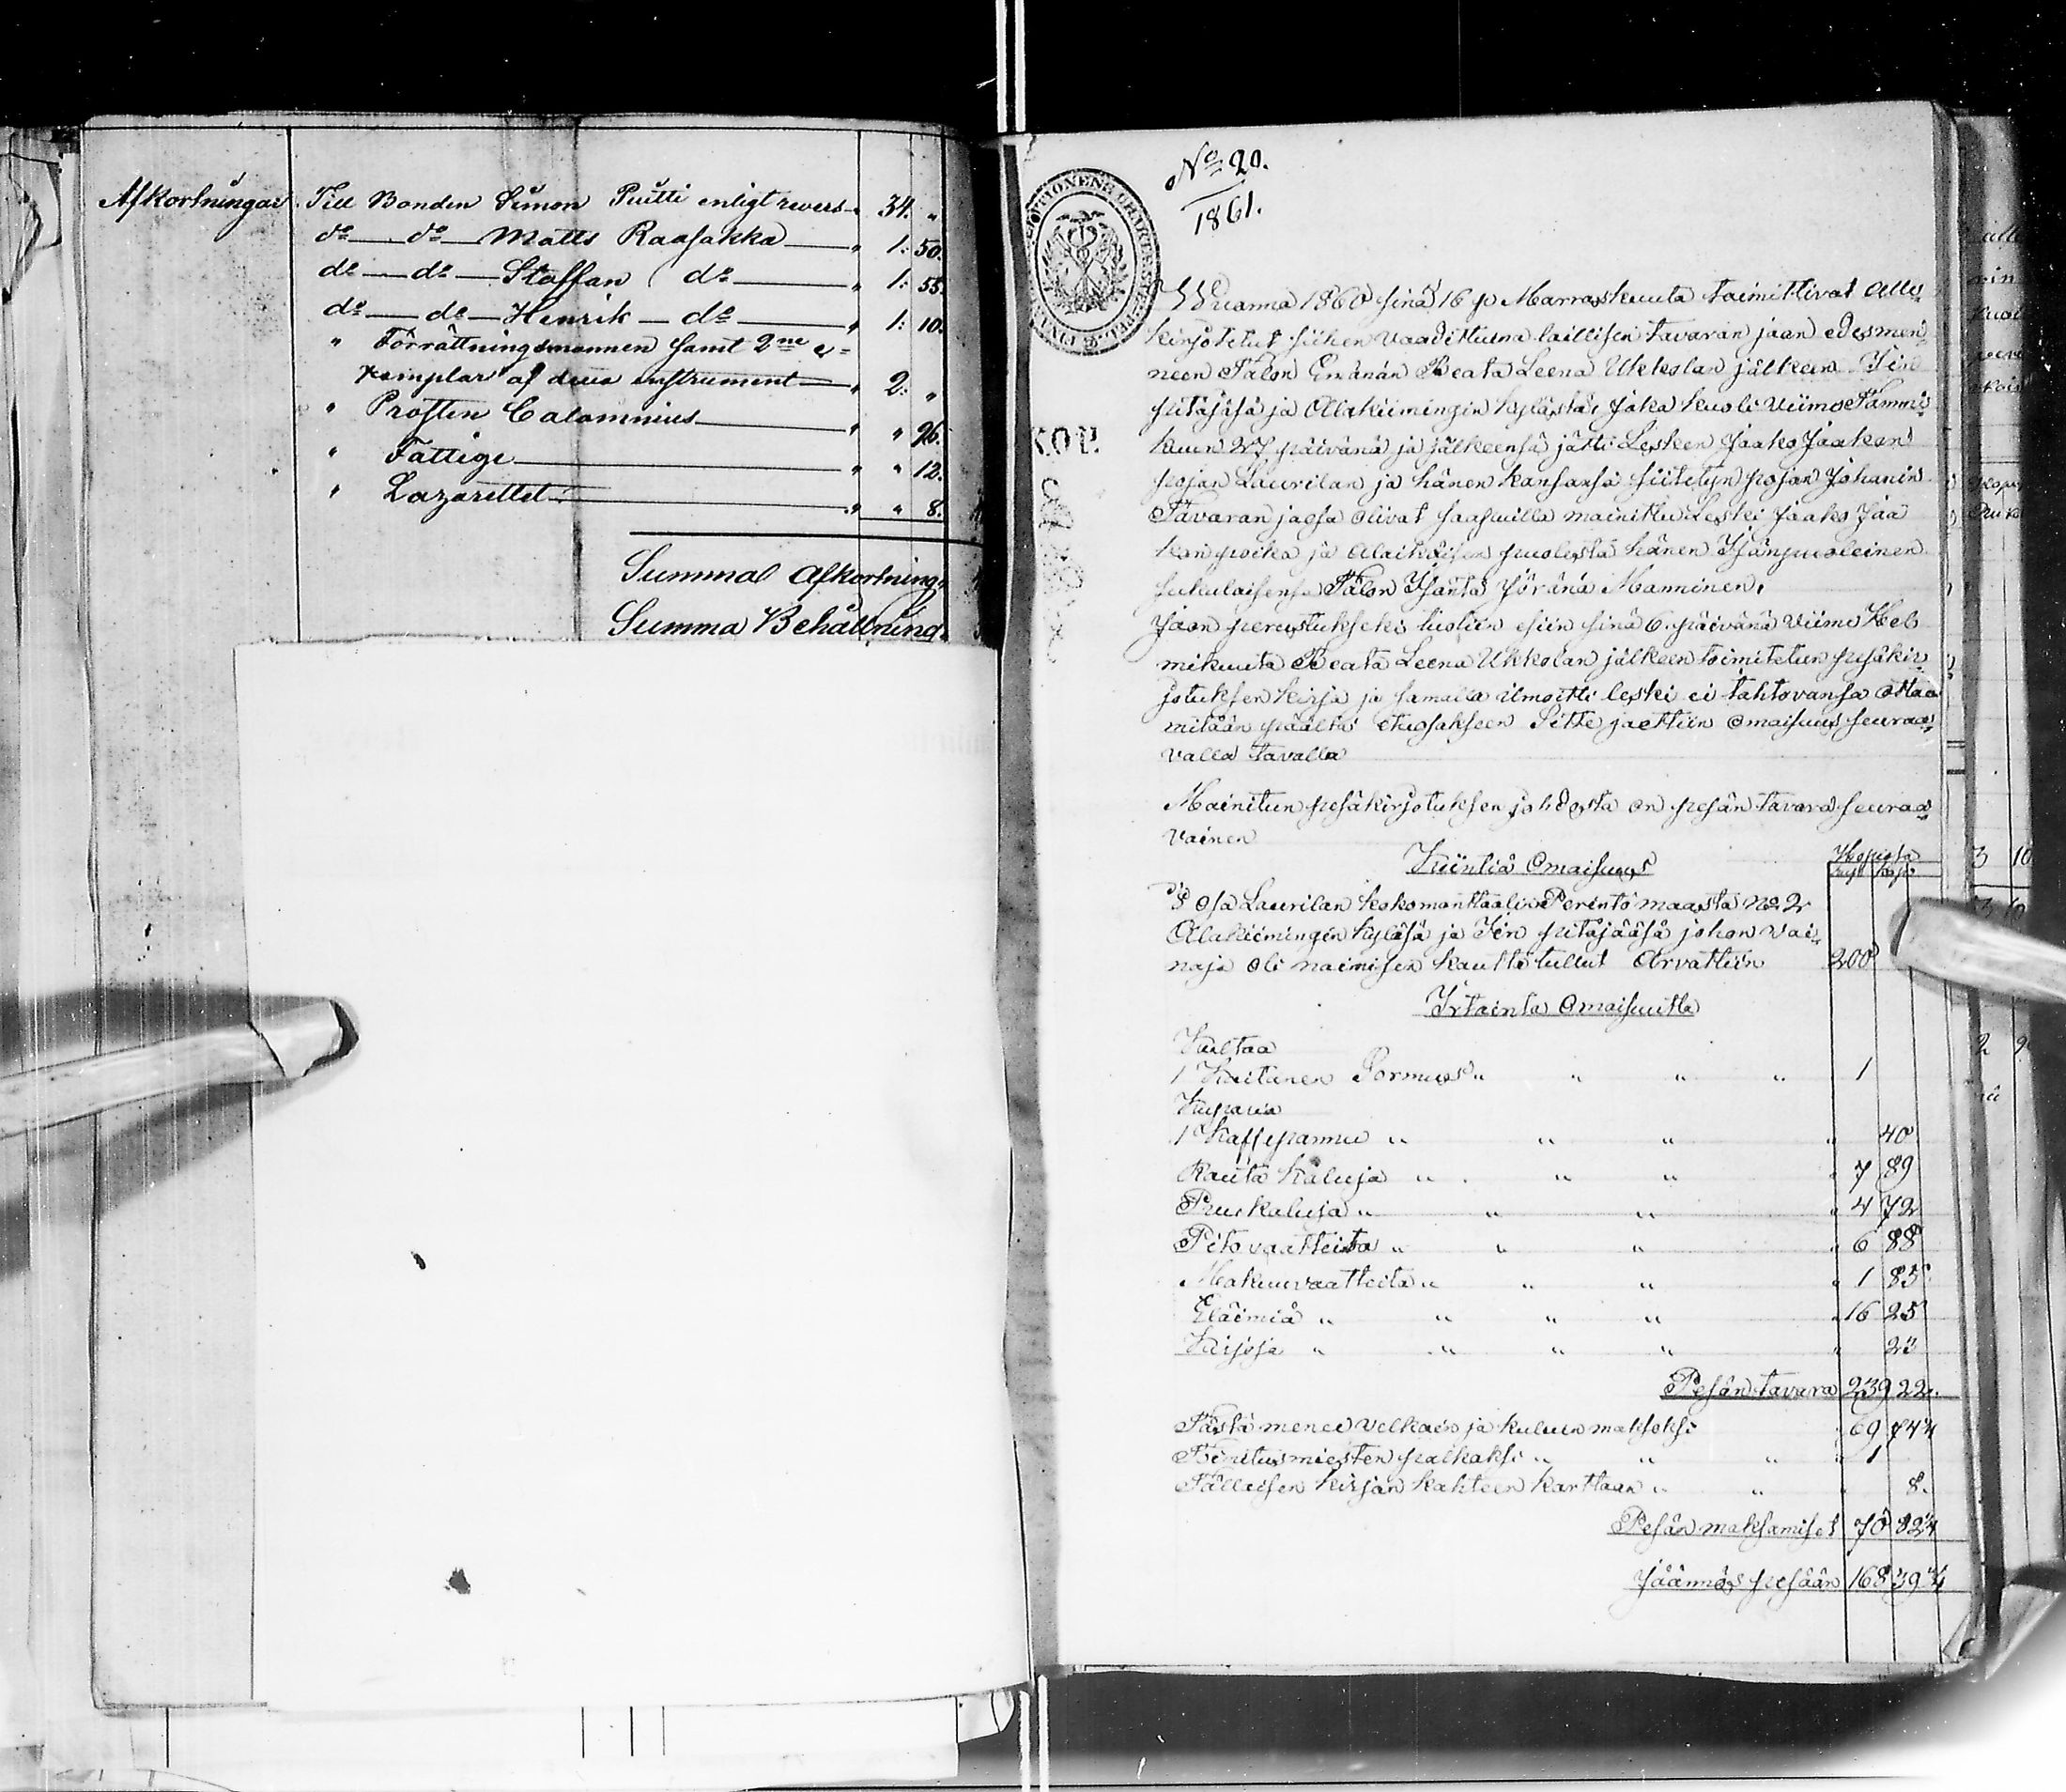 Afkortningar Till Bonden Simon Puitti enligt revers " 34. "
do do Matts Raasakka " 1: 50.
do do Staffan do " 1: 55.
do do Henrik do " 1: 10.
" Förrättningsmannen samt 2ne e-
xemplar af detta instrument " 2: "
" Prosten Calamnius " " 96.
" Fattige " " 12.
" Lazarettet " " 8.
Summa Afkortning.
Summa Behållning.
No 20.
1861.
KOP.
Wuanna 1860 sinä 16 p Marraskuuta toimittivat alle
kirjotetut siihen vaadittuina laillisen tavaran jaon edesmen
neen Talon Emänän Beata Leena Ukkolan jälkeen Iin
pitäjäsä ja Alakiimingin kylästä, joka kuoli viime Tammi
kuun 27 päivänä ja jälkeensä jätti Lesken Jaako Jaakon
pojan Laurilan ja hänen kansansa siitetyn pojan Johanin
Tavaran jaosa olivat saapuilla mainittu Leski Jaako Jaa
kon poika ja alaikäisen puolesta hänen Isänpuoleinen
sukulaisensa Talon Isäntä Jöränä Manninen.
Jaon perustukseksi tuotiin esiin sinä 6. päivänä viime Hel
mikuuta Beata Leena Ukkolan jälkeen toimitetun pesäkir
jotuksen kirja ja samalla ilmoitti leski ei tahtovansa ottaa
mitään päältä etuosakseen Sitte jaettiin omaisuus seuraa
valla tavalla
Mainitun pesäkirjotuksen johdosta on pesän tavara seuraa
vainen
Kiintiä Omaisuus
Hopiata
Rup Kop
osa Laurilan kokomanttaalin Perintö maasta No 2
Alakiimingin kyläsä ja Iin pitäjääsä johon vai
naja oli naimisen kautta tullut Arvattiin 200
Irtainta Omaisuutta
Kultaa
1 Kultanen Sormus " " " " 1
Kuparia
1 Kaffepannu " " " " 40
Rauta kaluja " " " " 7 89
Puukaluja " " " " 4 72
Pitovaatteita " " " " 6 88
Makuuvaatteita " " " " 1 85
Eläimiä " " " " " 16 25
Kirjoja " " " " " 23
Pesän tavara 239 22.
Tästä menee velkain ja kuluin maksoksi 69 74 3/4
Toimitusmiesten palkaksi " " " " 1
Tällaisen kirjan kahteen karttaan " " " 8.
Pesän maksamiset 70 82 3/4
Jäännös pesään 168 39 1/4